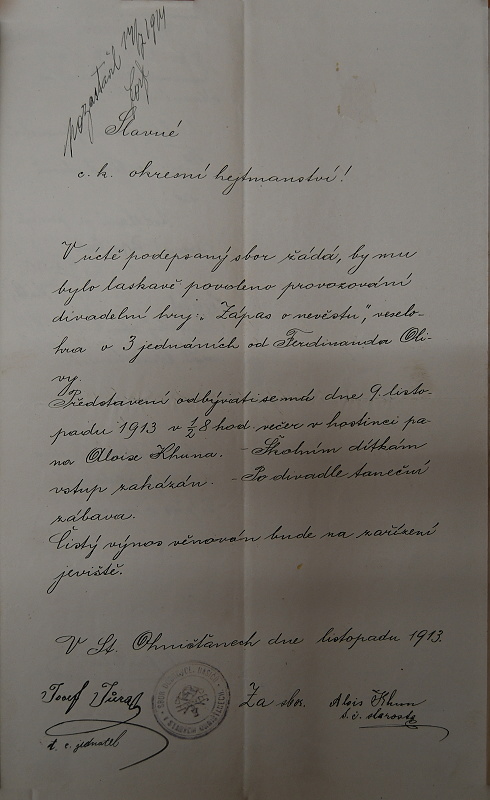 pozastavil 17/7 1914
Slavné
c. k. okresní hejtmanství!
V úctě podepsaný sbor žádá, by mu
bylo laskavě povoleno provozování
divadelní hry: „Zápas o nevěstu", veselo-
hra v 3 jednáních od Ferdinanda Oli-
vy.
Představení odbývati se má dne 9. listo-
padu 1913 v ½8 hod. večer v hostinci pa-
na Aloise Khuna. - Školním dítkám
vstup zakázán. - Po divadle taneční
zábava.
Čistý výnos věnován bude na zařízení
jeviště.
V St. Ohništanech dne listopadu 1913.
Josef
Za sbor.
Alois Khun
t. č. starosta
t. č. jednatel